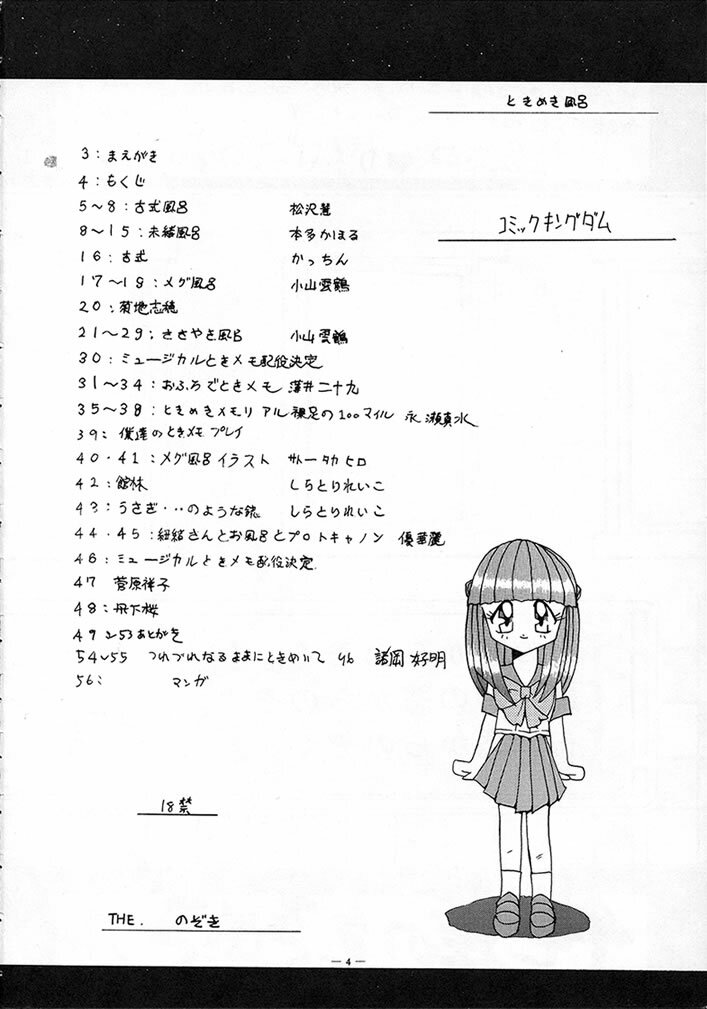 ときめき風呂
コミックキングダム
3:まえがき
4:もくじ
5〜8:古式風呂 松沢慧
8〜15:未緒風呂 本多かほる
16:古式 かっちん
17〜19:メグ風呂 小山雲鶴
20:菊地志穂
21〜29:ささやき風呂 小山雲鶴
30:ミュージカルときメモ配役決定
31〜34:おふろでときメモ 薄井二十九
35〜38:ときめきメモリアル裸足の100マイル 永瀬真水
39:僕達のときメモプレイ
40・41:メグ風呂イラスト サトータカヒロ
42:館林 しらとりれいこ
43:うさぎ・・のような銃 しらとりれいこ
44・45:紐緒さんとお風呂とプロトキャノン 優華麗
46:ミュージカルときメモ配役決定.
47 菅原祥子
48:丹下桜
49〜53あとがき
54〜55 つれづれなるままにときめいて 諸岡好明
56: マンガ
18禁
THE. のぞき
— 4 —